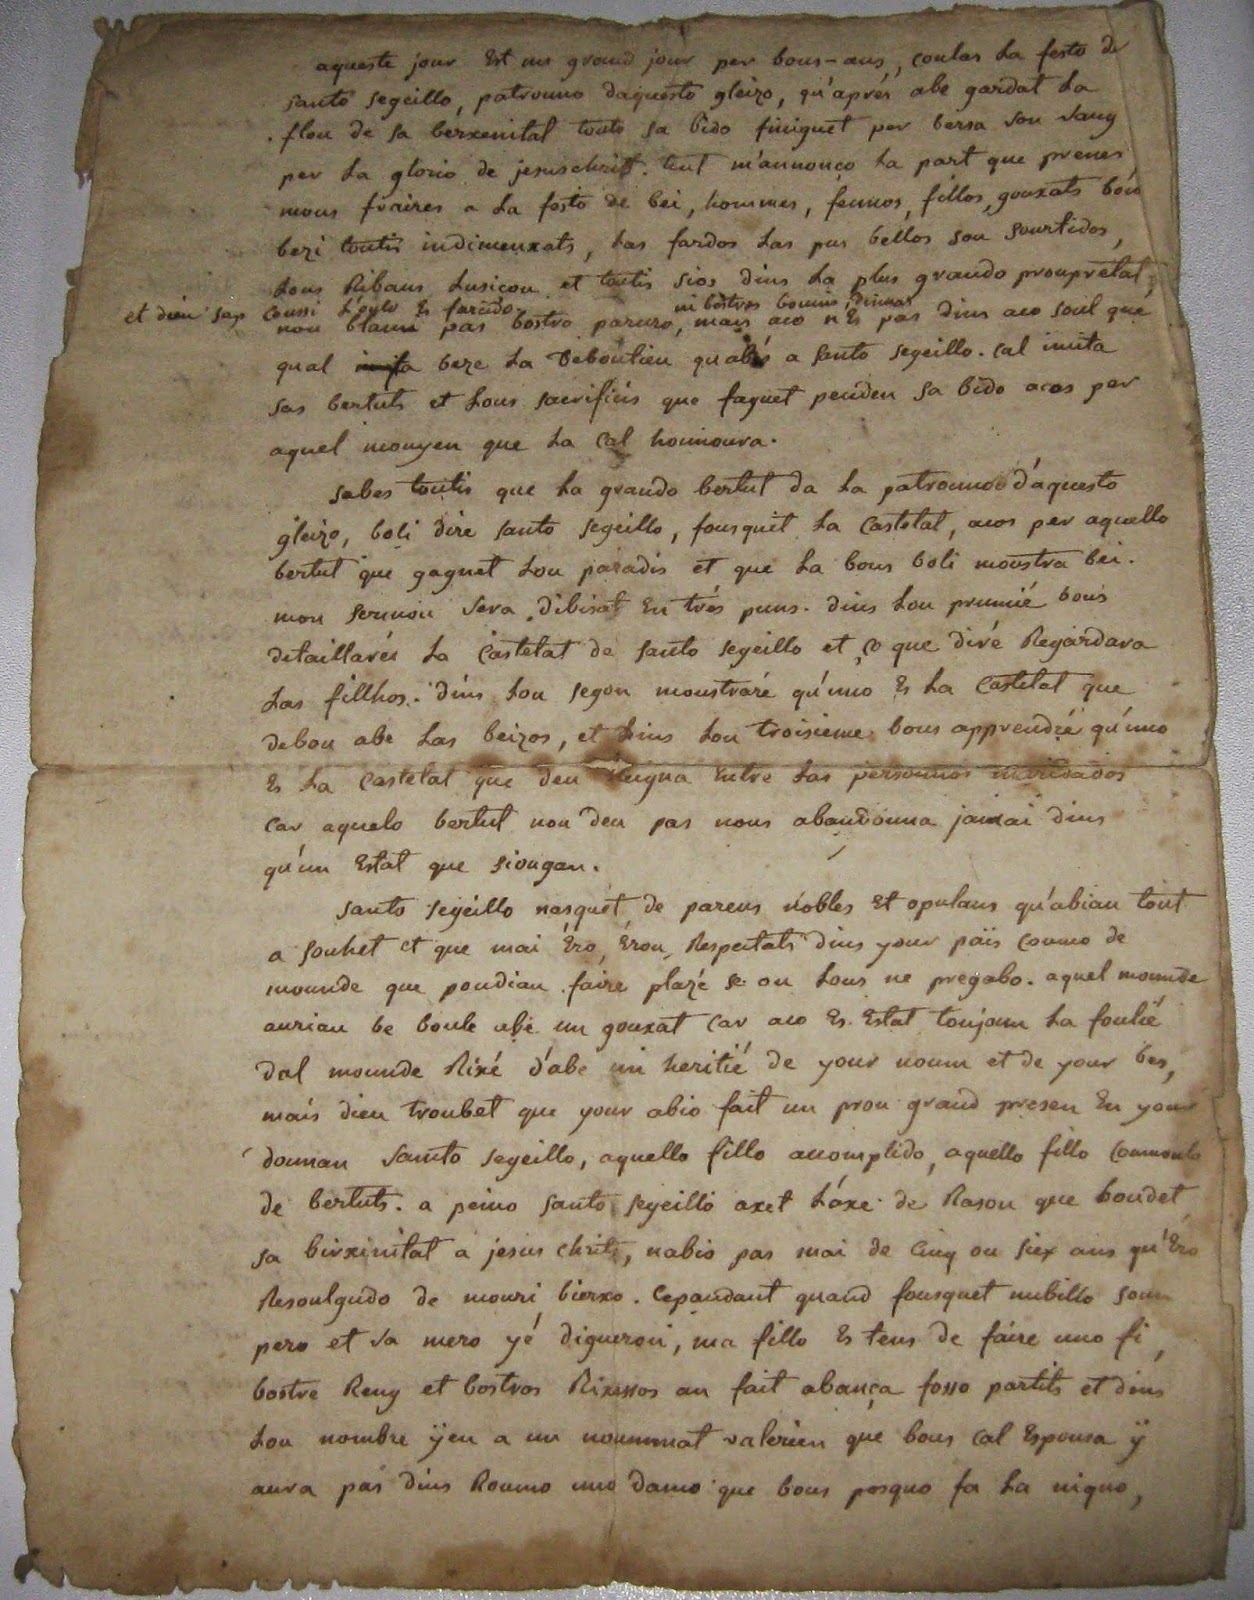 aqueste jour Est un grand jour per bous-aus, coulas La festo de
santo segeillo, patrouno daquesto gleizo, qu'aprés abe gardat La
flou de sa berxenitat touto sa bido finiguet per bersa son sang
per La glorio de jesuschrist. tout m'annonço La part que prenes
mous fraires a La festo de bei, hommes, fennos, fillos, gouxats
bezi toutis indimenxats, Las fardos Las pus bellos sou sourtidos,
Lous Ribans Lusicou et toutis sios dins La plus grando proupretat,
et dieu sap coussi L'aylo Es farado. ni bostres bounis dinnar
nou blami pas bostro paruro, mais aco n'Es pas dins aco soul que
qual beze La Deboutieu qu'abés a santo segeillo. cal imita
sas bertuts et Lous sacrifiûs que faguet penden sa bido acos per
aquel mouyen que La cal hounoura.
sabes toutis que La grando bertut da La patrounoo d'aquesto
gleizo, boli dire santo segeillo, fousquet La Castetat, acos per aquello
bertut que gagnet Lou paradis et que La bous boli moustra bei.
mon sermou sera dibisat En trés puns. dins Lou prumié bous
detaillaréi La Castetat de santo segeillo et ço que diré Regardara
Las fillhos. dins Lou segon moustraré qu'uno Es La Castetat que
debou abe Las beizos, et dins Lou troisieme bous apprendré qu'uno
Es La Castetat que deu Reigna Entre Las persounos maridados
Car aquelo bertut nou deu pas nous abandouna jamai dins
qu'un Estat que siougan.
santo segéillo nasquet de parens nobles Et opulans qu'abian tout
a souhet et que mai Ero, Érou Respectats dins your païs coumo de
mounde que poudian faire plazé se ou Lous ne pregabo. aquel mounde
aurian be boule abe un gouxat car aco Es Estat toujoun La foulié
dal mounde Rixé d'abe un heritié de your noum et de your bes,
mais dieu troubet que your abio fait un prou grand presen En your
dounan santo segeillo, aquello fillo accomplido, aquello fillo
de bertuts. a peino santo segeillo axet L'áxe de Rasou que boudet
sa birxinitat a jesus christ, nabio pas mai de Cinq ou siex ans qu'Ero
Resoulgudo de mouri bierxo. Cependant quand fousquet nubillo soun
pero et sa mero yé digueroú, ma fillo Es tens de faire uno fi,
bostre Reng et bostros Rixessos an fait abança fosso partits et dins
Lou nombre ÿeu a un noummat valerien que bous cal Espousa ÿ
aura pas dins Roumo uno damo que bous posquo fa La niquo,